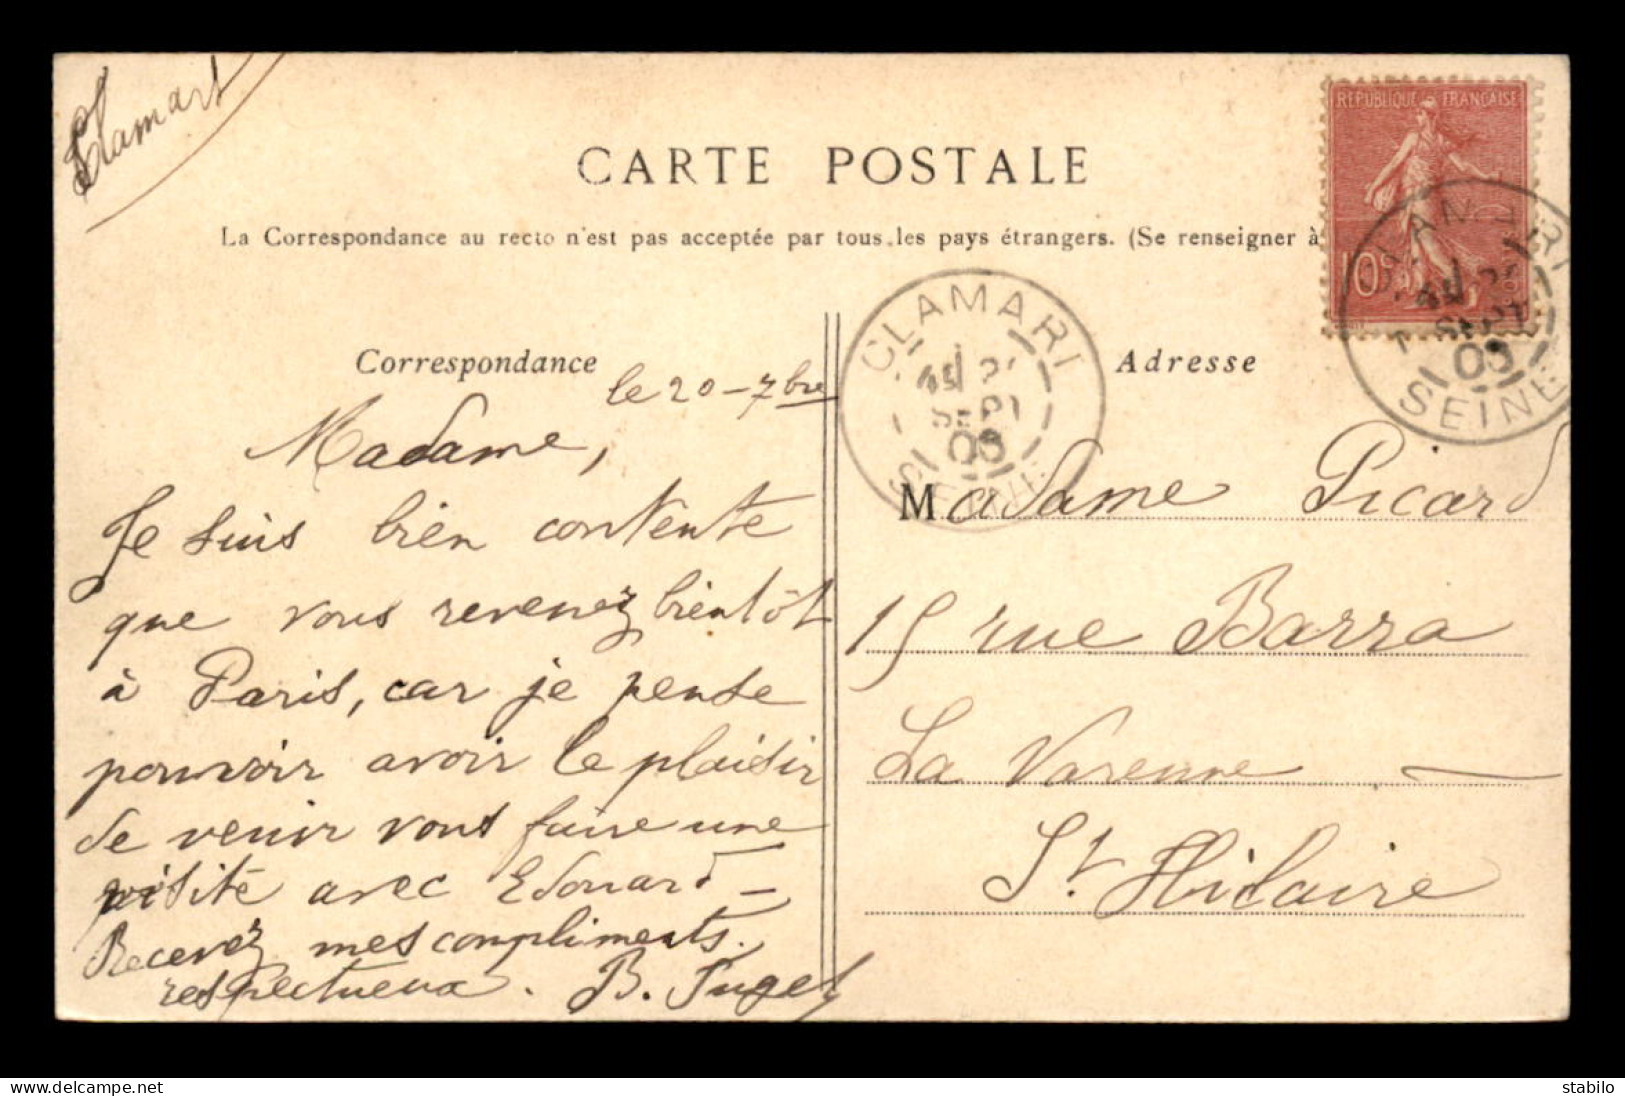 Clamart
CARTE POSTALE
La Correspondance au recto n'est pas acceptée par tous les pays étrangers. (Se renseigner à
REPUBLIQUE FRANÇAISE
10c
CLAMART
SEPT
SEINE
CLAMART
SEPT
SEINE
Correspondance
le 20 - 7bre
Madame,
Je suis bien contente
que vous revenez bientôt
à Paris, car je pense
pouvoir avoir le plaisir
de venir vous faire une
visite avec Edouard —
Recevez mes compliments
respectueux. B.
Adresse
Madame Picard
15 rue Barra
La Varenne —
St Hilaire
delcampe.net
stabilo